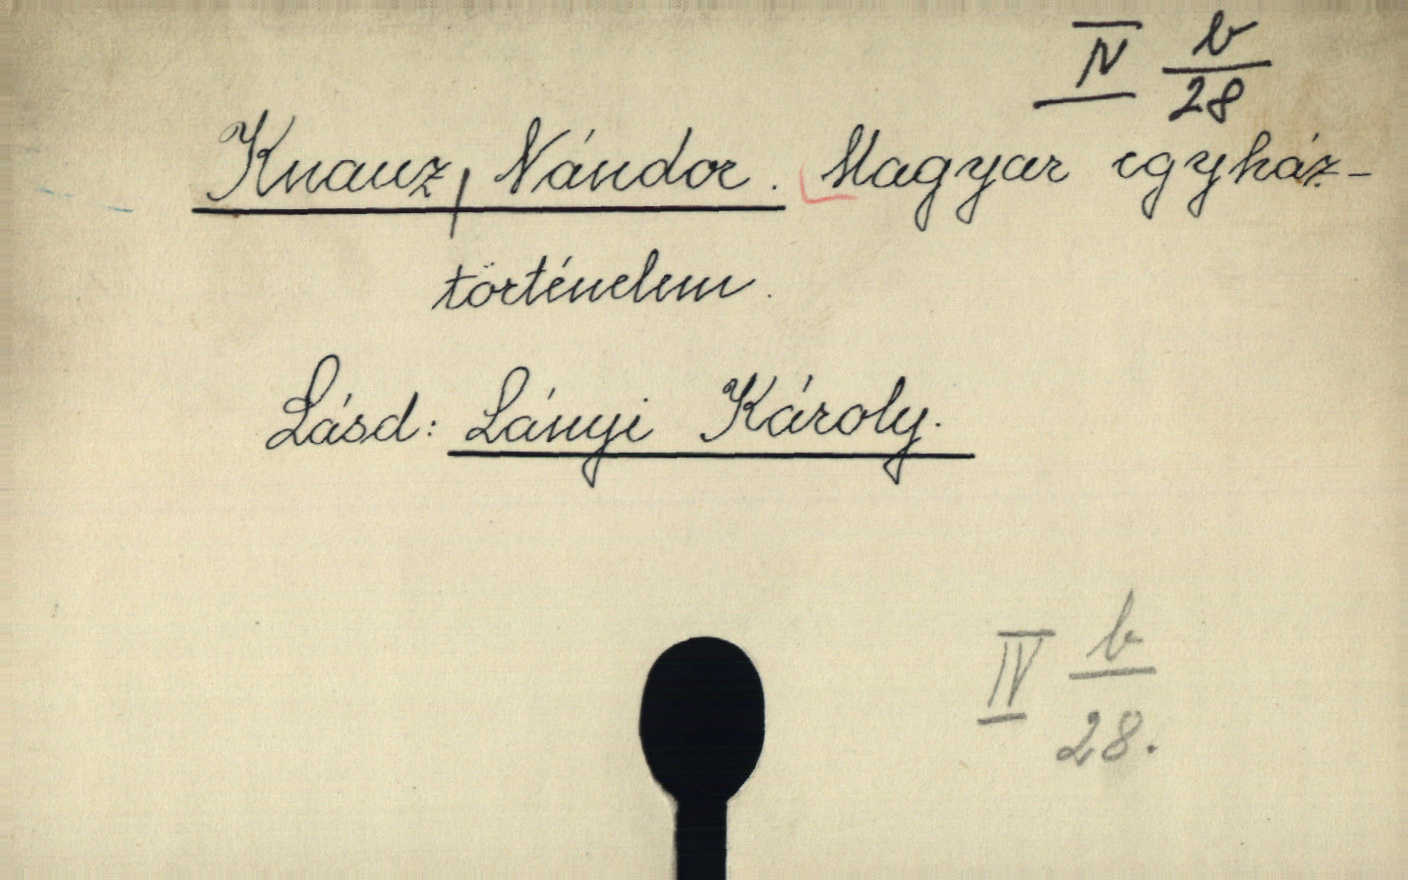 IV b/28
Knauz, Nándor. Magyar egyház-
történelem.
Lásd: Lányi Károly.
IV b/28.